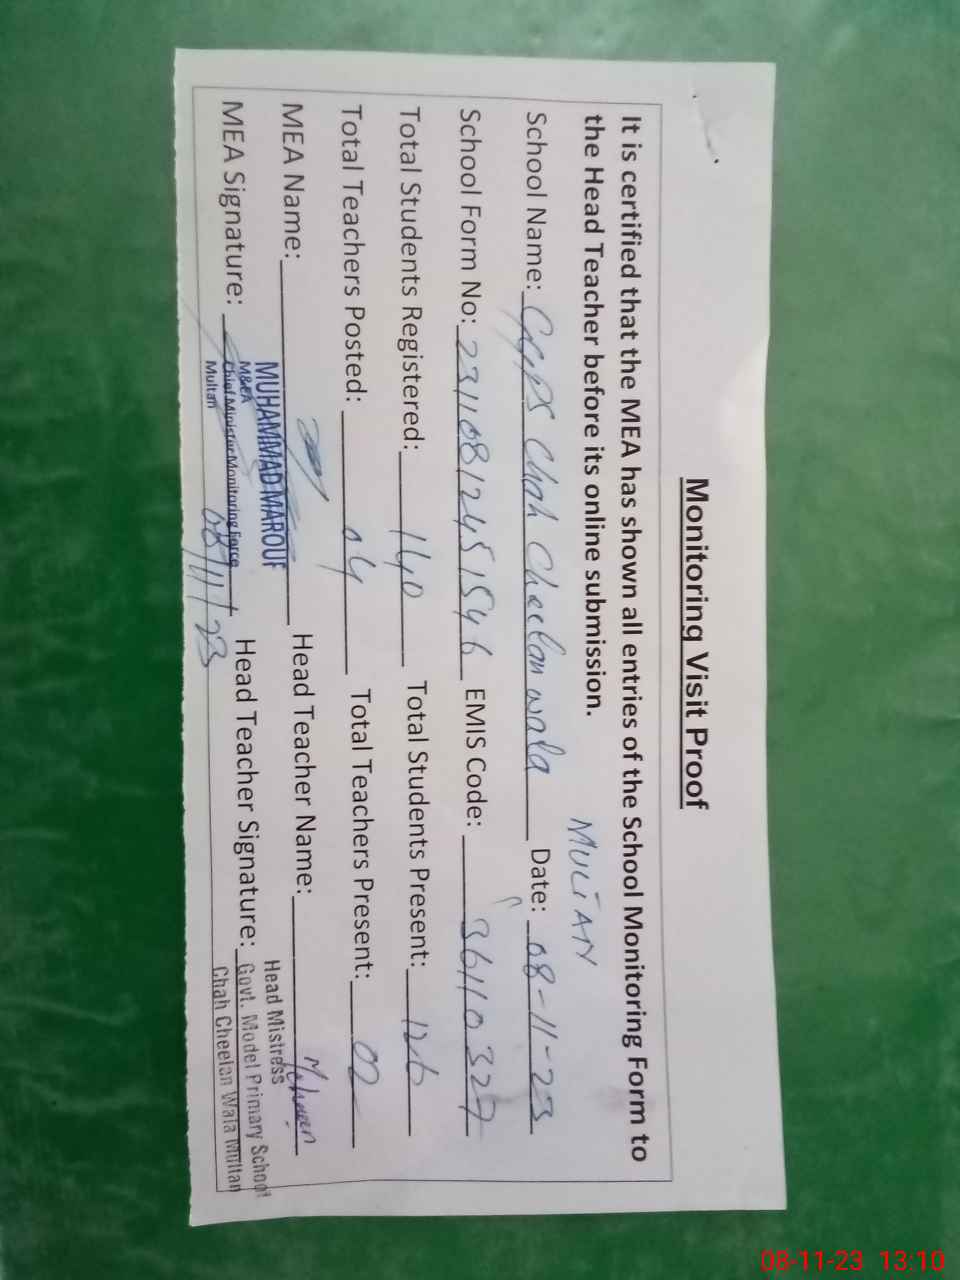 Monitoring Visit Proof
It is certified that the MEA has shown all entries of the School Monitoring Form to
the Head Teacher before its online submission.
MULTAN
School Name: GGPS Chah Cheelan wala Date: 08-11-23
School Form No: 23110812451546 EMIS Code: 36110327
Total Students Registered: 140 Total Students Present: 126
Total Teachers Posted: 04 Total Teachers Present: 02
MEA Name: Head Teacher Name: Maheen
MUHAMMAD MAROUF
M&EA
Chief Minister Monitoring Force
Multan
MEA Signature: 08/11/23 Head Teacher Signature:
Head Mistress
Govt. Model Primary School
Chah Cheelan Wala Multan
08-11-23 13:10